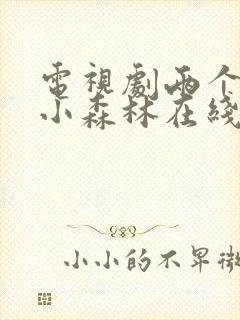 電視劇兩个
小森林在綫
小小的不早微